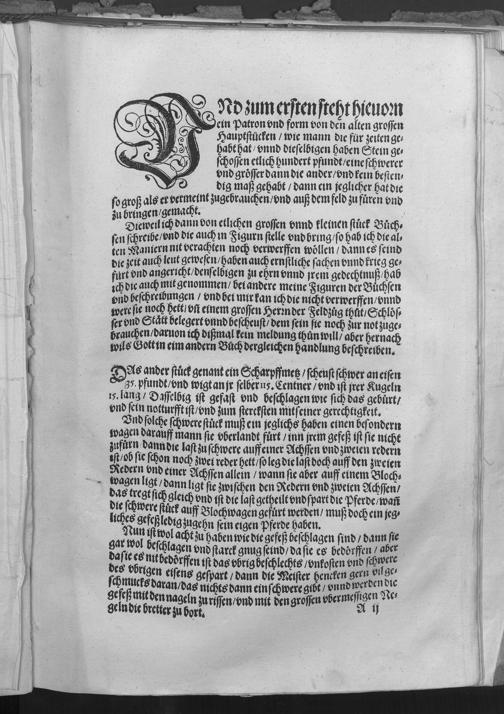 VNd zum ersten steht hieuorn
ein Patron vnd form von den alten grossen
Hauptstücken / wie mann die für zeiten ge-
habt hat / vnnd dieselbigen haben Stein ge-
schossen etlich hundert pfundt / eine schwerer
vnd grösser dann die ander / vnd kein besten-
dig maß gehabt / dann ein jeglicher hat die
so groß als er vermeint zugebrauchen / vnd auß dem feld zu füren vnd
zu bringen / gemacht.
Dieweil ich dann von etlichen grossen vnnd kleinen stück Büch-
sen schreibe / vnd die auch in Figurn stelle vnd bring / so hab ich die al-
ten Maniern nit verachten noch verwerffen wöllen / dann es seind
die zeit auch leut gewesen / haben auch ernstliche sachen vnnd krieg ge-
fürt vnd angericht / denselbigen zu ehrn vnnd jrem gedechtnuß / hab
ich die auch mit genommen / bei andere meine Figuren der Büchsen
vnd beschreibungen / vnd bei mir kan ich die nicht verwerffen / vnnd
wers sie noch hett / vñ einem grossen Herrn der Feldzüg thüt / Schlös-
ser vnd Stätt belegert vnnd bescheust / dem sein sie noch zur not zuge-
brauchen / daruon ich dißmal kein meldung thün will / aber hernach
wils Gott in eim andern Büch dergleichen handlung beschreiben.
DAs ander stück genant ein Scharpffmetz / scheust schwer an eisen
95. pfundt / vnd wigt an jr selber 115. Centner / vnd ist jrer Kugeln
15. lang / Dasselbig ist gefast vnd beschlagen wie sich das gebürt /
vnd sein notturfft ist / vnd zum stercksten mit seiner gerechtigkeit.
Vnd solche schwere stück muß ein jeglichs haben einen besondern
wagen darauff mann sie vberlandt fürt / inn jrem gefeß ist sie nicht
zufürn dann die last zu schwere auff einer Achssen vnd zweien redern
ist / ob sie schon noch zwei reder hett / so leg die last doch auff den zweien
Redern vnd einer Achssen allein / wann sie aber auff einem Bloch-
wagen ligt / dann ligt sie zwischen den Redern vnd zweien Achssen /
das tregt sich gleich vnd ist die last getheilt vnd spart die Pferde / wañ
die schwere stück auff Blochwagen gefürt werden / muß doch ein jeg-
liches gefeß ledig zugehn sein eigen Pferde haben.
Nun ist wol acht zu haben wie die gefeß beschlagen sind / dann sie
gar wol beschlagen vnd starck gnug seind / da sie es bedörffen / aber
da sie es nit bedörffen ist das vbrig beschlechts / vnkosten vnd schwere
des vbrigen eisens gespart / dann die Meister hencken gern vil ge-
schmucks daran / das nichts dann ein schwere gibt / vnnd werden die
gefeß mit den nageln zu rissen / vnd mit den grossen vbermessigen Ne-
geln die bretter zu bort.
A ij